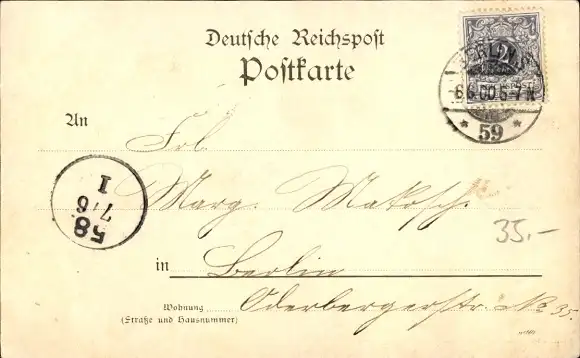 Deutsche Reichspost
Postkarte
BERLIN S
6.6.00.6-7N
* 59 *
2
An
Frl.
Marg. Makosch.
58
7/6
1
35.-
in Berlin
Wohnung Oderbergerstr. No 35.
(Straße und Hausnummer)